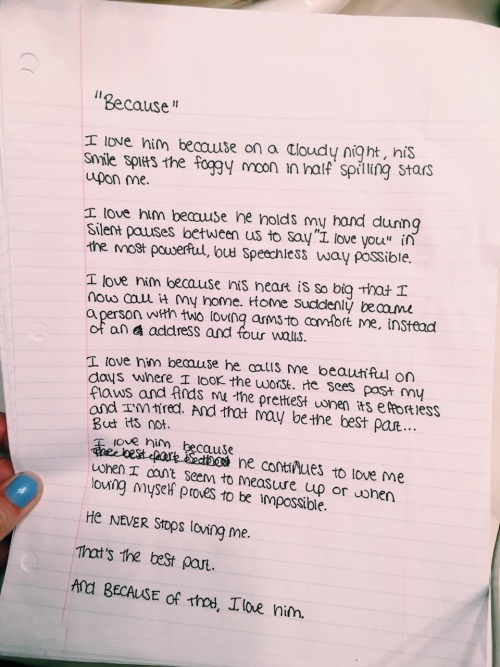 "Because"
I love him because on a cloudy night, his
smile splits the foggy moon in half spilling stars
upon me.
I love him because he holds my hand during
silent pauses between us to say "I love you" in
the most powerful, but speechless way possible.
I love him because his heart is so big that I
now call it my home. Home suddenly became
a person with two loving arms to comfort me, instead
of an address and four walls.
I love him because he calls me beautiful on
days where I look the worst. He sees past my
flaws and finds me the prettiest when its effortless
and I'm tired. And that may be the best part...
But its not.
I love him because
he continues to love me
when I can't seem to measure up or when
loving myself proves to be impossible.
He NEVER stops loving me.
That's the best part.
And BECAUSE of that, I love him.